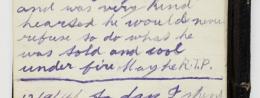 and was very kind
hearted he would never
refuse so do what he
was told and cool
under fire May he R.I.P.
to day I